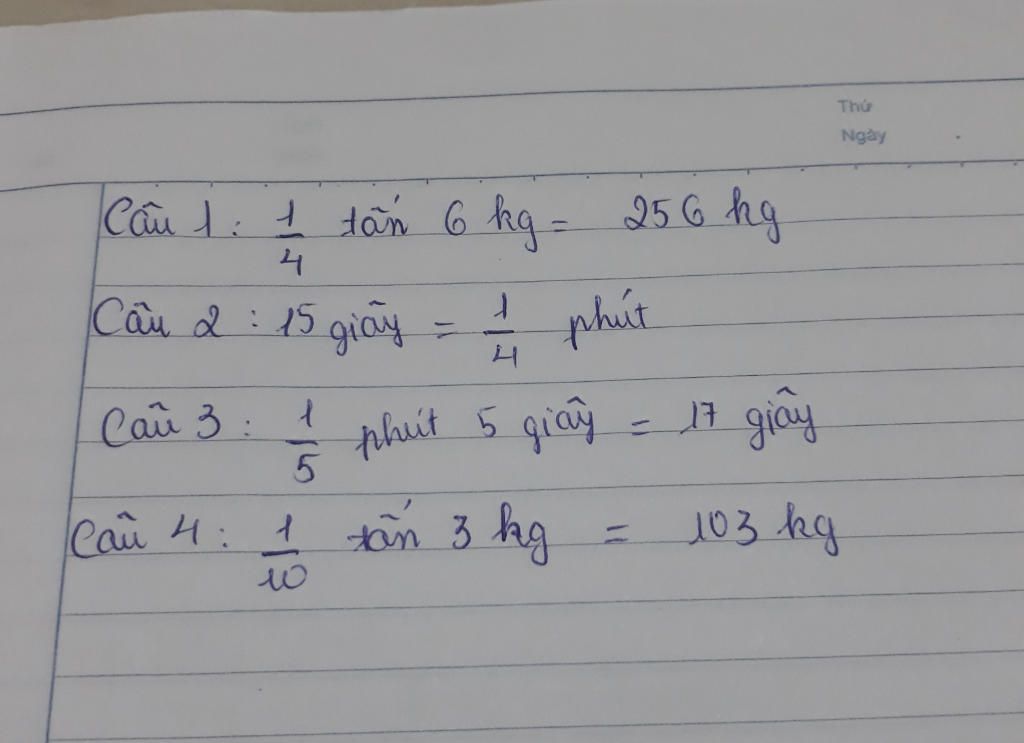 Thứ
Ngày
Câu 1 : 1/4 tấn 6 kg = 256 kg
Câu 2 : 15 giây = 1/4 phút
Câu 3 : 1/5 phút 5 giây = 17 giây
Câu 4 : 1/10 tấn 3 kg = 103 kg